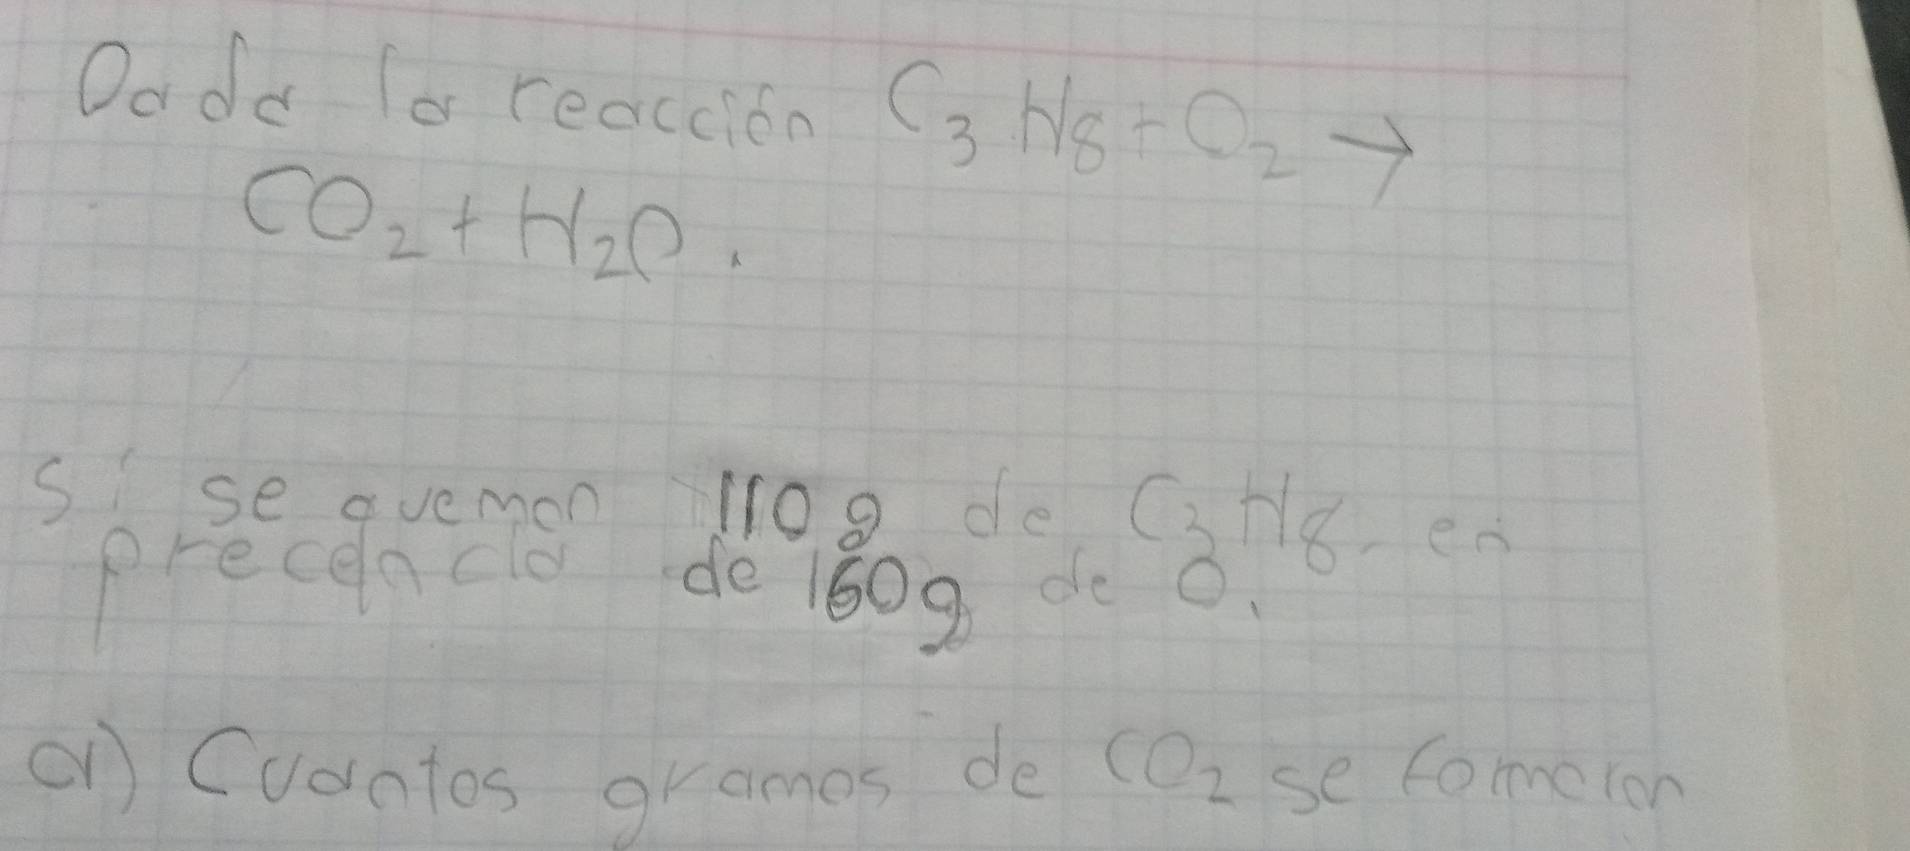 Dada la reacción C₃H₈ + O₂ →
CO₂ + H₂O.
Si se queman 110g de C₃H₈ en
precencia de 160g de O.
a) Cuantos gramos de CO₂ se formaron